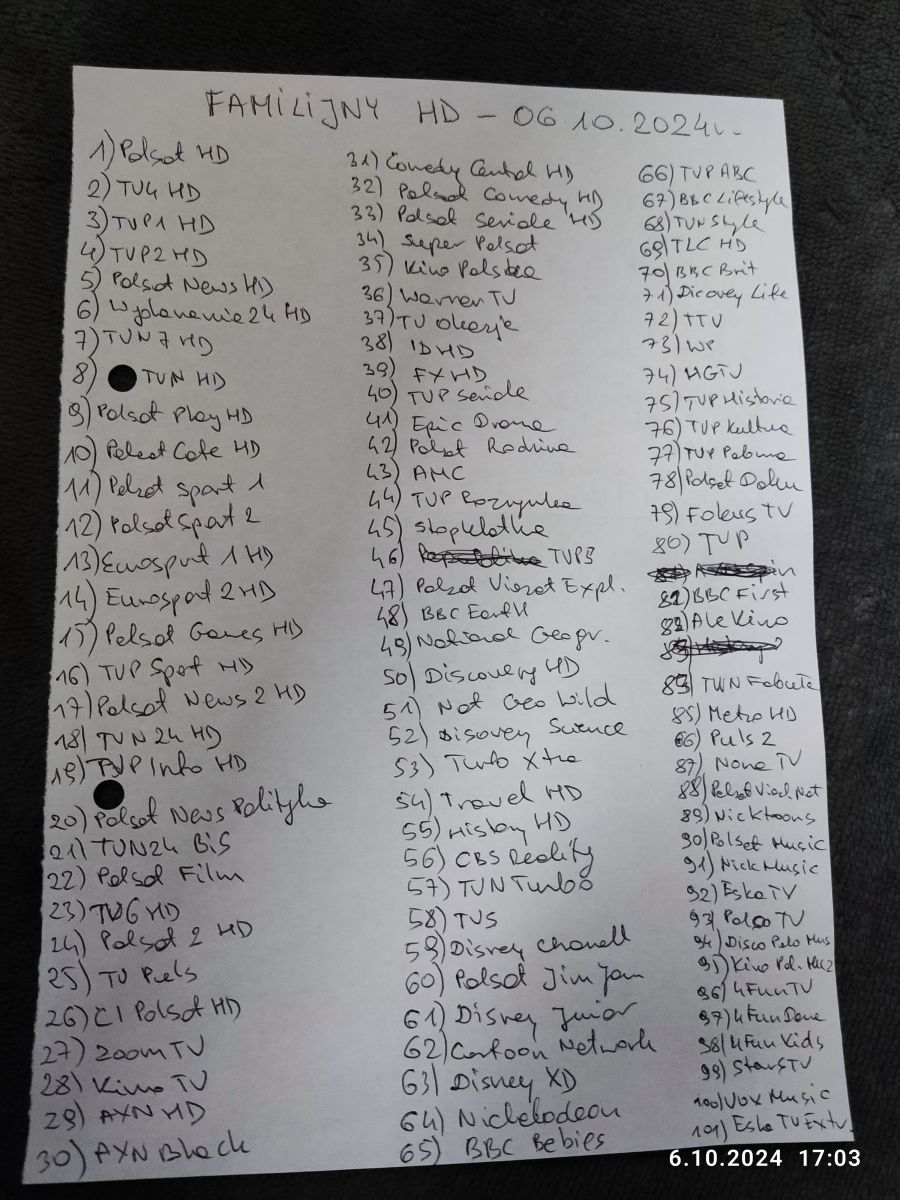 FAMILIJNY HD - 06.10.2024r.
1) Polsat HD
2) TV4 HD
3) TVP1 HD
4) TVP2 HD
5) Polsat News HD
6) Wydarzenia 24 HD
7) TVN 7 HD
8) TVN HD
9) Polsat Play HD
10) Polsat Cafe HD
11) Polsat Sport 1
12) Polsat Sport 2
13) Eurosport 1 HD
14) Eurosport 2 HD
15) Polsat Games HD
16) TVP Sport HD
17) Polsat News 2 HD
18) TVN 24 HD
19) TVP Info HD
20) Polsat News Polityka
21) TVN24 BiS
22) Polsat Film
23) TV6 HD
24) Polsat 2 HD
25) TV Puls
26) CI Polsat HD
27) Zoom TV
28) Kino TV
29) AXN HD
30) AXN Black
31) Comedy Central HD
32) Polsat Comedy HD
33) Polsat Seriale HD
34) Super Polsat
35) Kino Polska
36) Warner TV
37) TV Okazje
38) ID HD
39) FX HD
40) TVP Seriale
41) Epic Drama
42) Polsat Rodzina
43) AMC
44) TVP Rozrywka
45) Stopklatka
46) TVP3
47) Polsat Viasat Expl.
48) BBC Earth
49) National Geogr.
50) Discovery HD
51) Nat Geo Wild
52) Disovery Science
53) Turbo Xtra
54) Travel HD
55) History HD
56) CBS Reality
57) TVN Turbo
58) TVS
59) Disney Chanell
60) Polsat Jim Jam
61) Disney Junior
62) Cartoon Network
63) Disney XD
64) Nickelodeon
65) BBC Bebies
66) TVP ABC
67) BBC Lifestyle
68) TVN Style
69) TLC HD
70) BBC Brit
71) Dicovey Life
72) TTV
73) WP
74) HGTV
75) TVP Historia
76) TVP Kultura
77) TVP Polonia
78) Polsat Doku
79) Fokus TV
80) TVP
82) BBC First
83) Ale Kino
TVN Fabuła
85) Metro HD
86) Puls 2
87) Nowa TV
88) Polsat Viasat Nat
89) Nicktoons
90) Polsat Music
91) Nick Music
92) Eska TV
93) Polo TV
94) Disco Polo Mus
95) Kino Pol. Muz
96) 4Fun TV
97) 4Fun Dance
98) 4Fun Kids
99) StarsTV
100) Vox Music
101) Eska TV Extr
6.10.2024 17:03